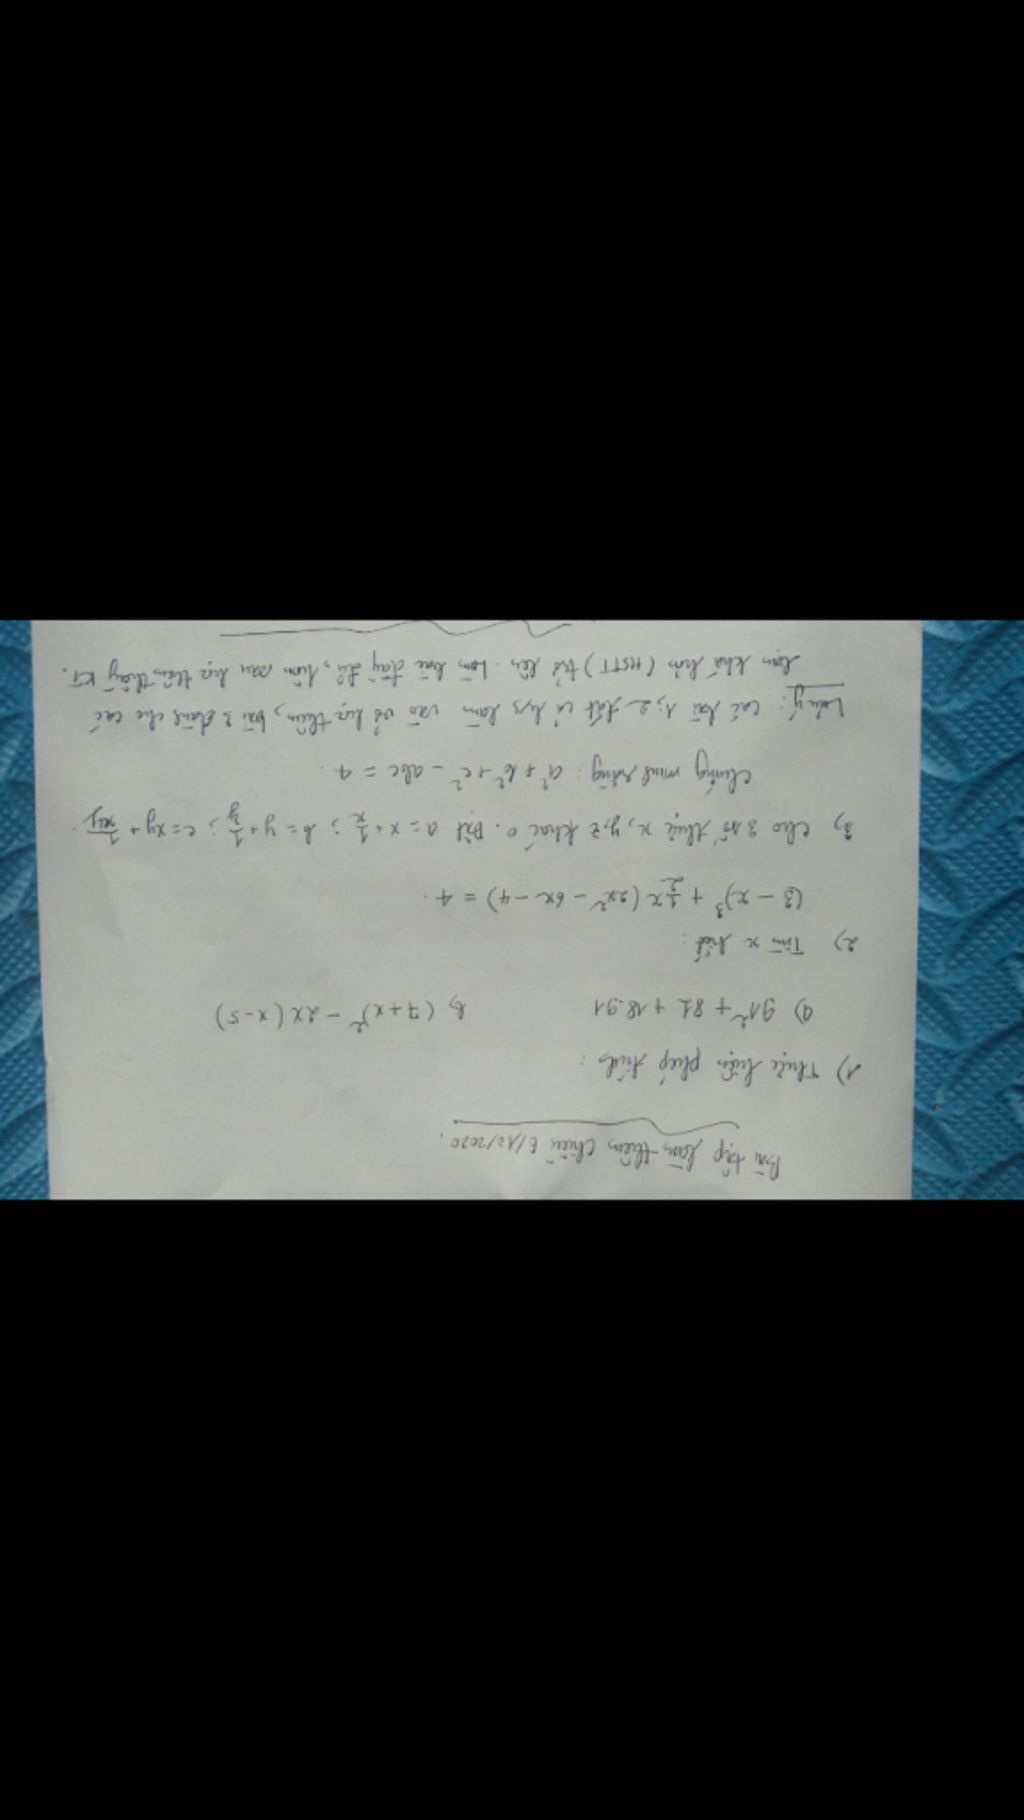 Bài tập làm thêm chiều 6/10/2020.
1) Thực hiện phép tính:
a) 91² + 81 + 18.91 b, (7+x)² - 2x(x-5)
2) Tìm x biết:
(3-x)³ + 1/2 x (2x² - 6x - 4) = 4.
3, Cho 3 số thực x, y, z khác 0. Đặt a = x + 1/x ; b = y + 1/y ; c = xy + 1/xy.
Chứng minh rằng: a² + b² + c² - abc = 4.
Lưu ý: Các bài 1; 2 tất cả hs làm vào vở học thêm, bài 3 dành cho các
bạn khá hơn (HSTT) trở lên. Làm bài đầy đủ, hôm sau học thêm thầy KT.